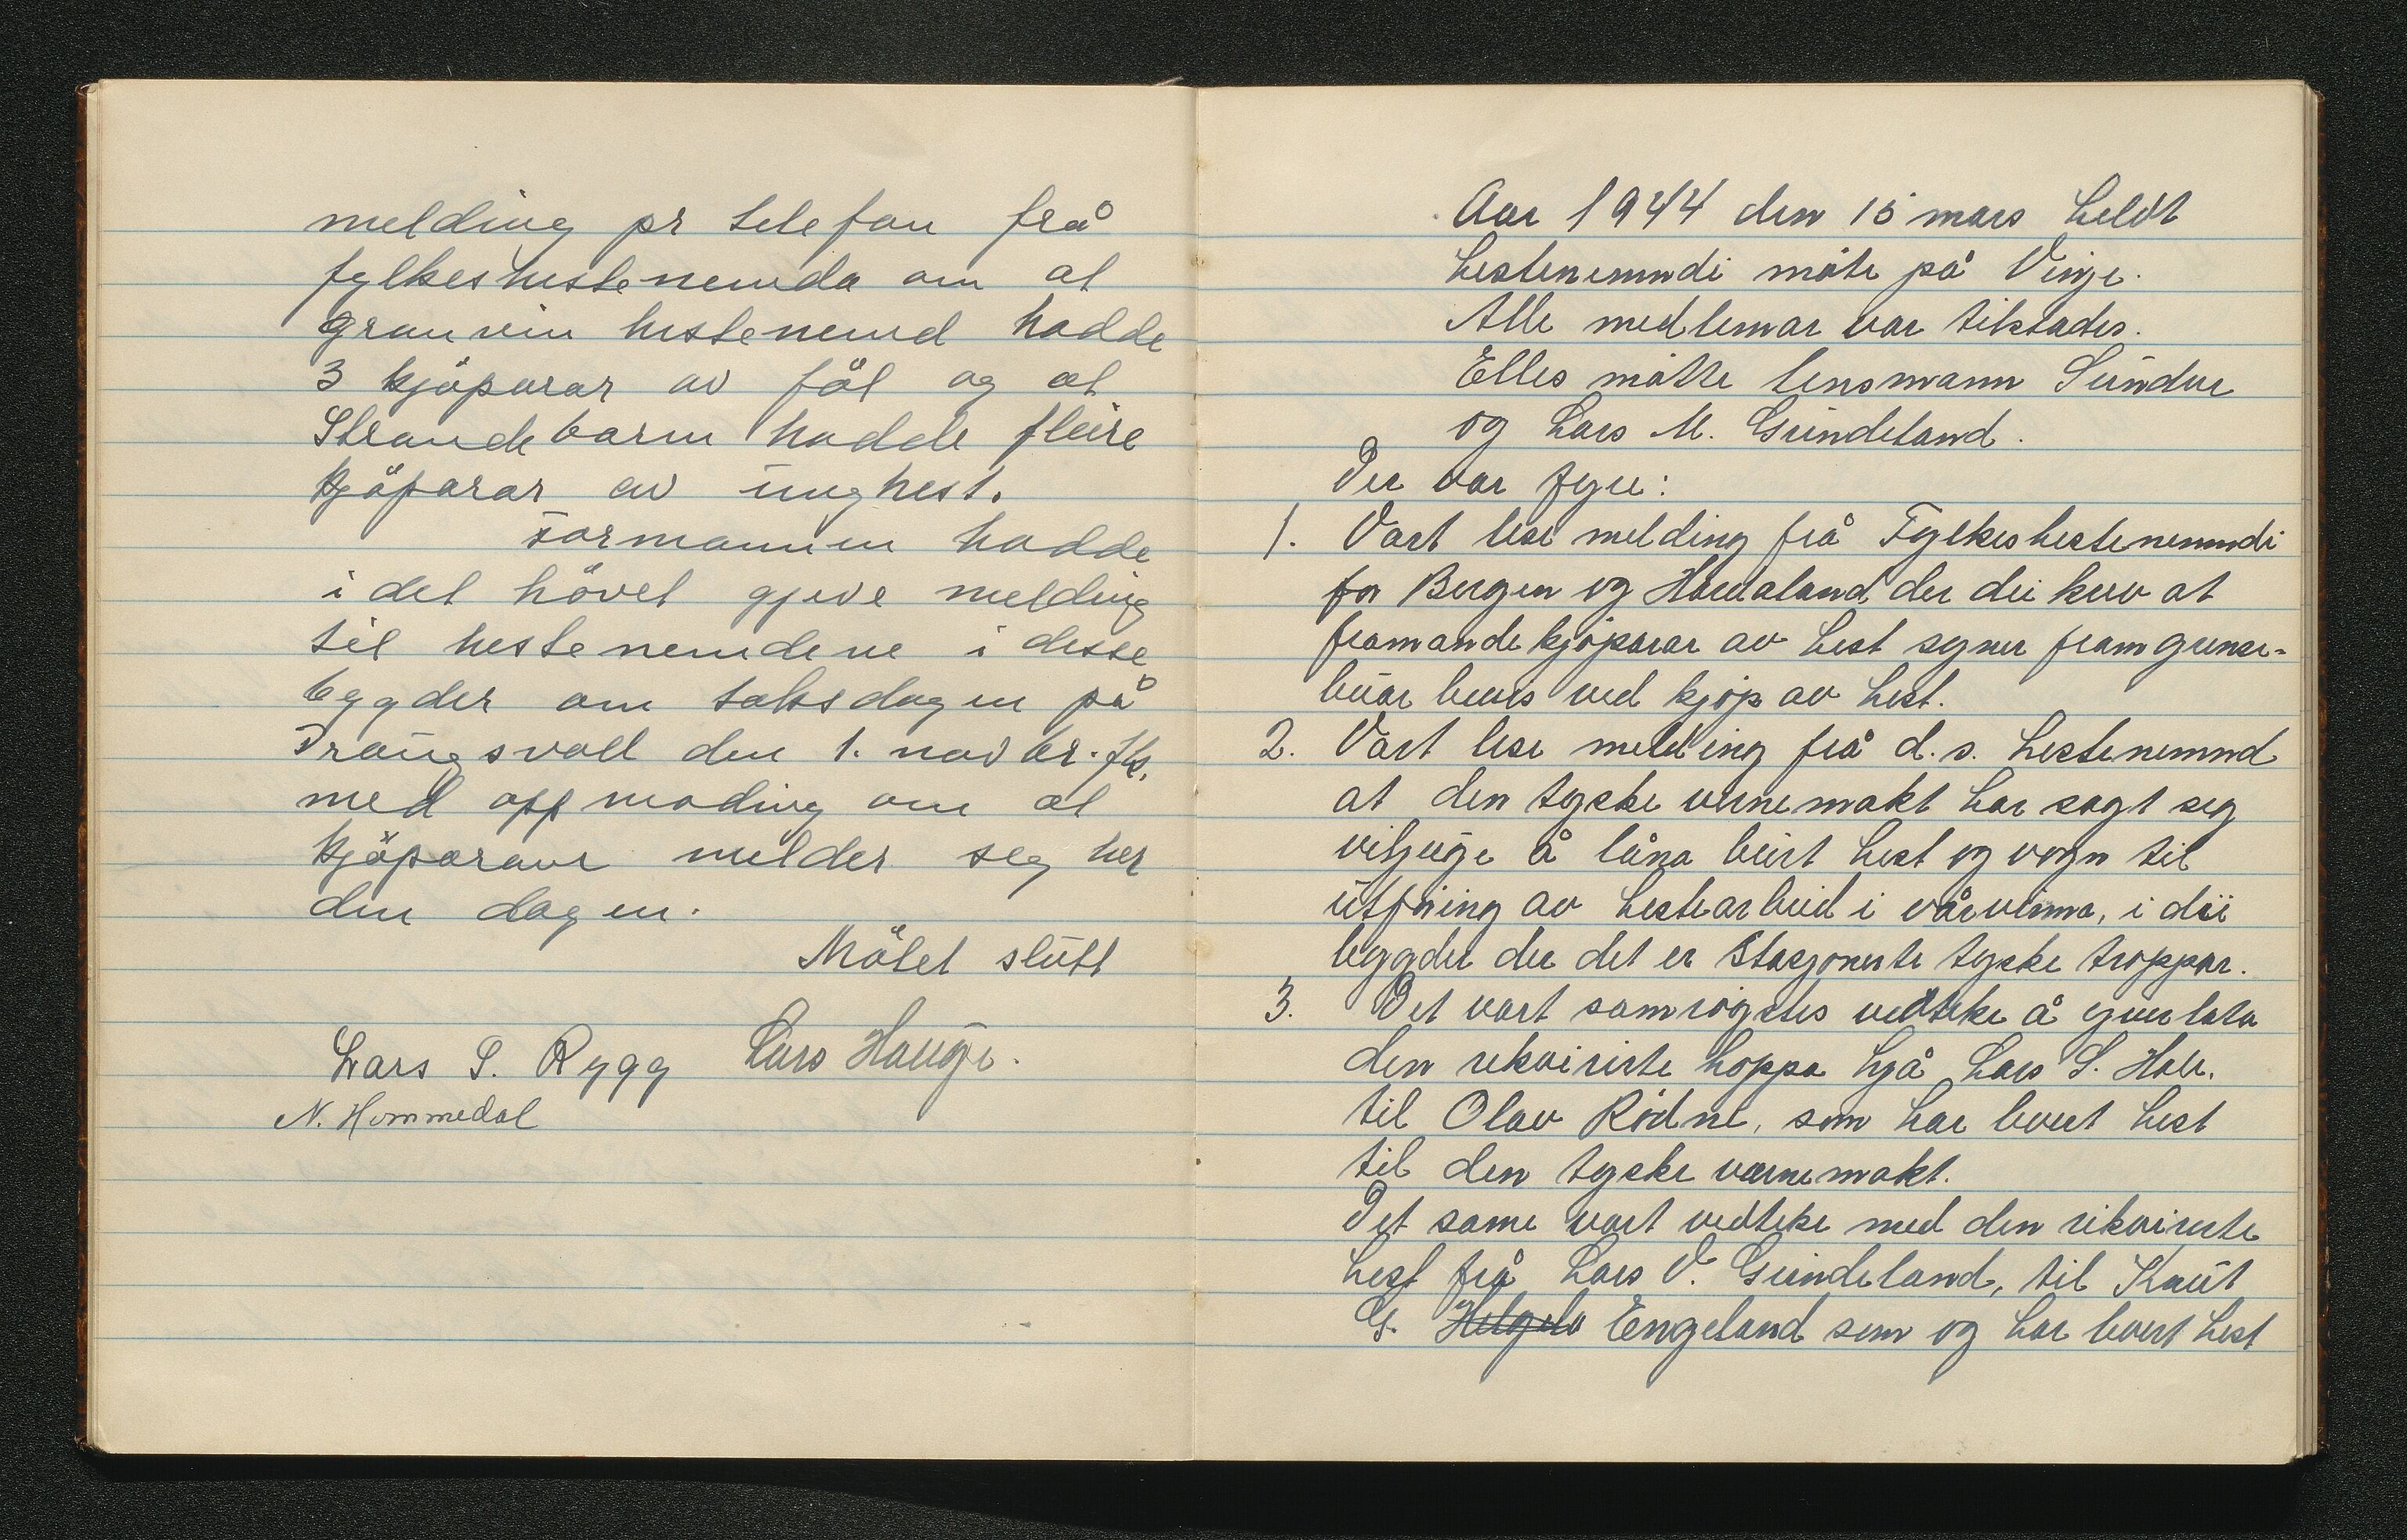 melding pr telefon frå
fylkeshestenemda om at
granvin hestenemd hadde
3 kjöparar av föl og at
Strandebarm hadde fleire
kjöparar av unghest.
Formannen hadde
i det hövet gjeve melding
til hestenemdene i desse
bygder om taksdagen på
Trangsvoll den 1. novbr.
med oppmoding om at
kjöparane melder seg her
den dagen.
Mötet slutt
Lars S. Rygg Lars Hauge.
N. Hommedal
Aar 1944 den 15 mars heldt
hestenemndi møte på Vinje.
Alle medlemar var tilstades.
Elles møtte lensmann Sundve
og Lars M. Grindeland.
Der var fyre:
1. Vart lese melding frå Fylkeshestenemndi
for Bergen og Hordaland der dei krev at
framande kjøparar av hest syner fram grense-
buar bevis ved kjøp av hest.
2. Vart lese melding frå d. s. hestenemnd
at den tyske vernemakt har sagt seg
viljuge å låna burt hest og vogn til
utføring av hestearbeid i vårvinna, i dei
bygder der det er Stasjonerte tyske troppar.
3. Det vart samrøystes vedteke å yverlata
den rekvirerte hoppa hjå Lars S. Hole.
til Olav Rødne, som har levert hest
til den tyske vernemakt.
Det same vart vedteke med den rekvirerte
hest frå Lars V. Grindeland, til Knut
G. Helgela Engeland som og har levert hest